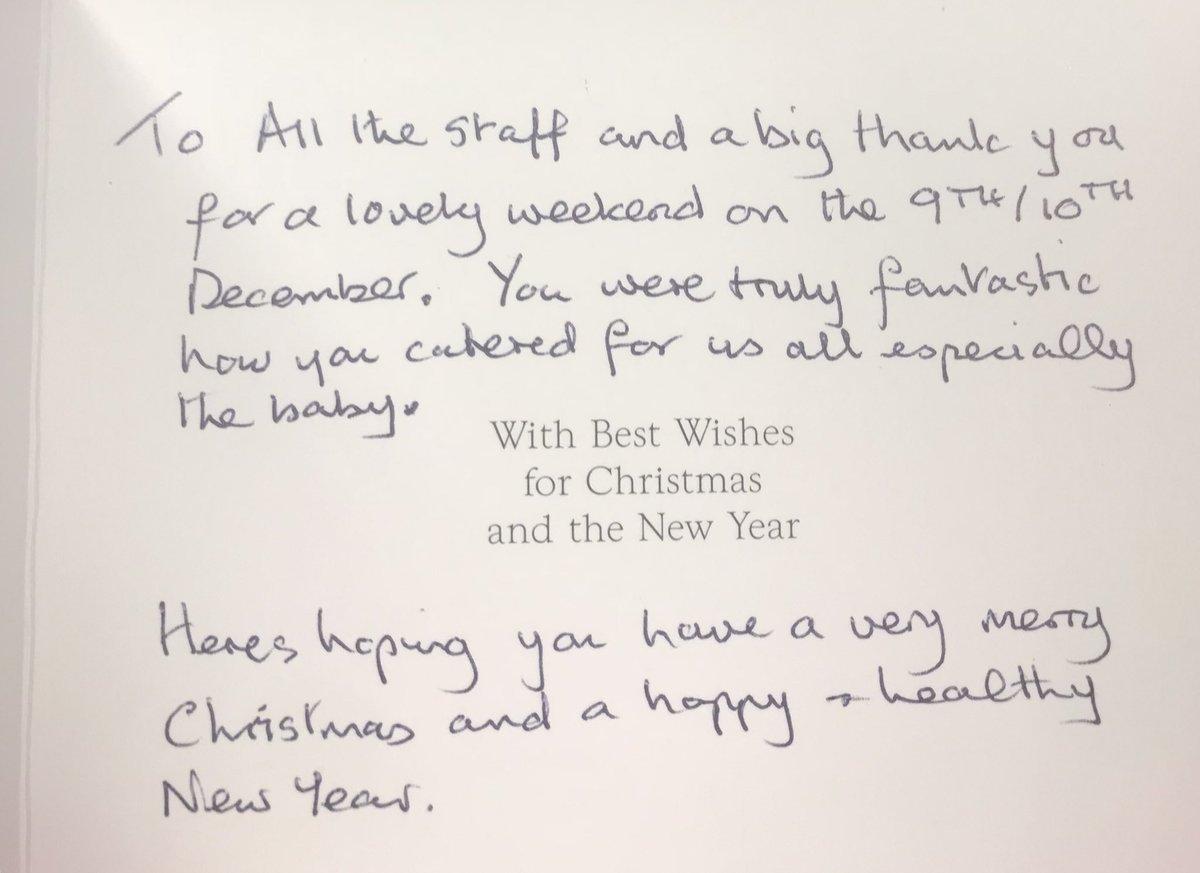 To All the staff and a big thank you
for a lovely weekend on the 9TH/10TH
December. You were truly fantastic
how you catered for us all especially
the baby.
With Best Wishes
for Christmas
and the New Year
Heres hoping you have a very merry
Christmas and a happy + healthy
New Year.